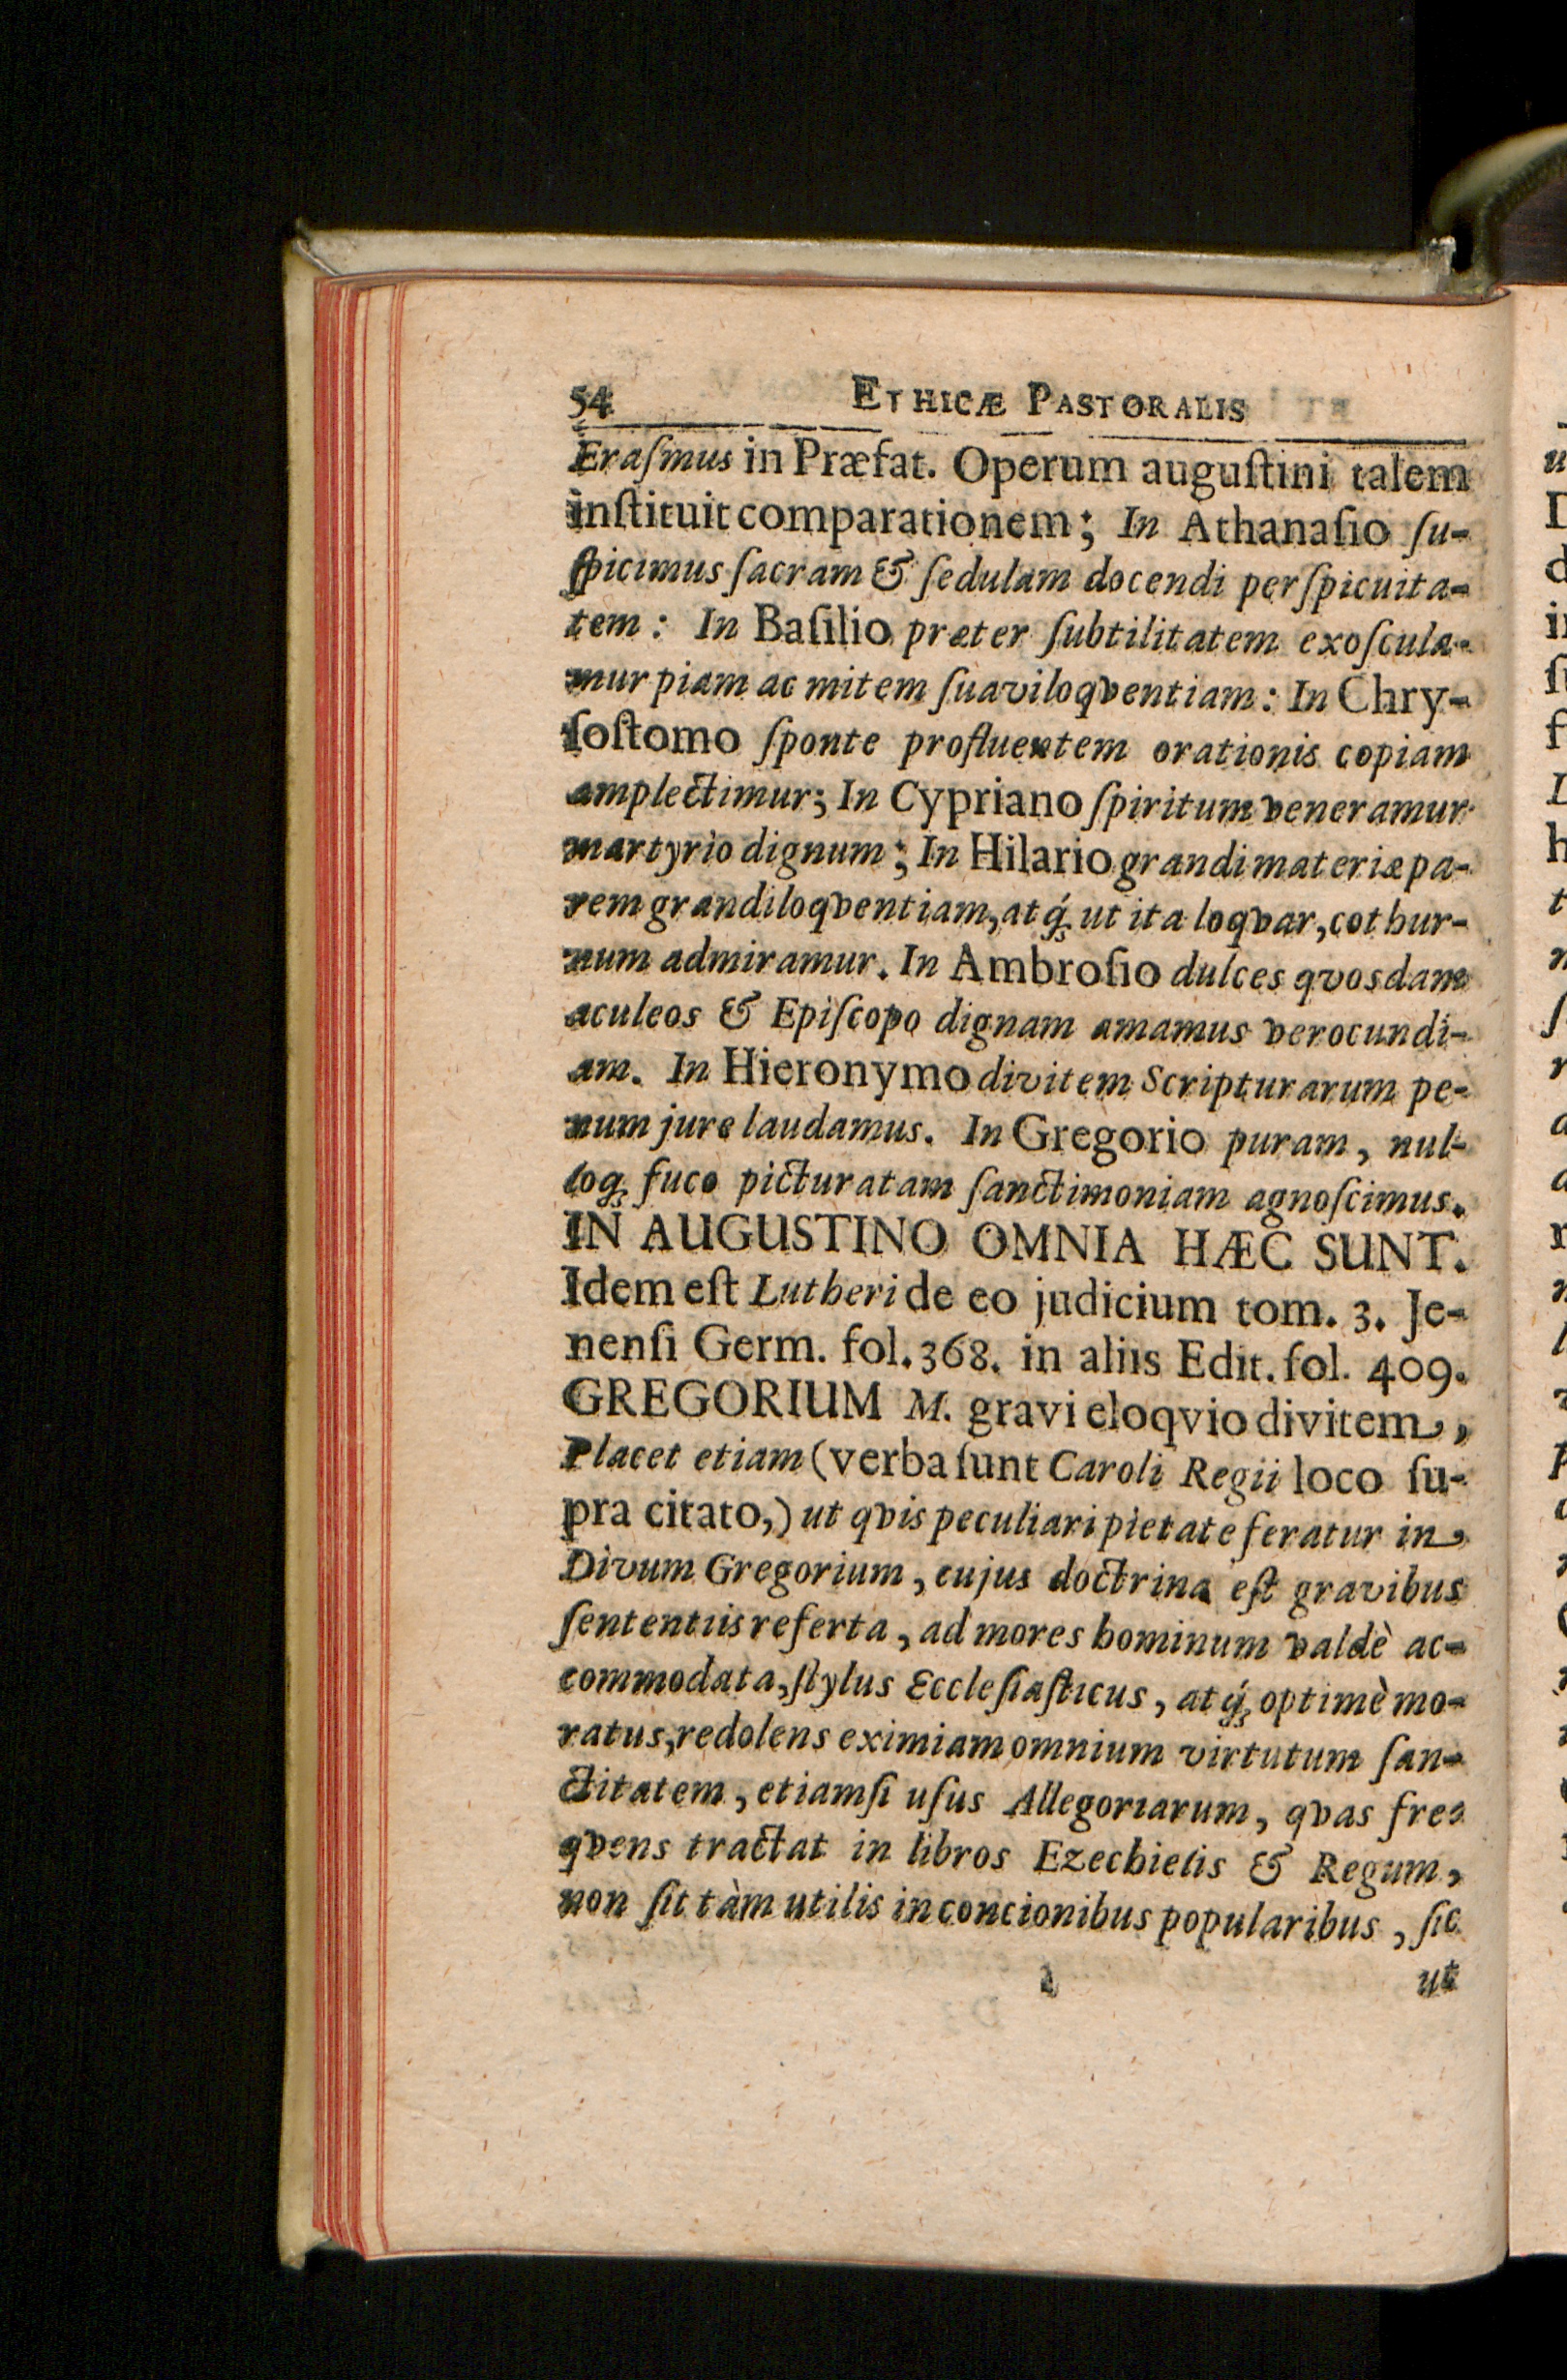 54 ETHICÆ PASTORALIS
Eraſmus in Præfat. Operum auguſtini talem
inſtituit comparationem; In Athanaſio ſu-
ſpicimus ſacram & ſedulam docendi perſpicuita-
tem: In Baſilio præter ſubtilitatem exoſcula-
mur piam ac mitem ſuaviloqventiam: In Chry-
ſoſtomo ſponte profluentem orationis copiam
amplectimur; In Cypriano ſpiritum veneramur
martyrio dignum; In Hilario grandi materiæ pa-
rem grandiloqventiam, atq́; ut ita loqvar, cothur-
num admiramur. In Ambroſio dulces qvosdam
aculeos & Epiſcopo dignam amamus verocundi-
am. In Hieronymo divitem Scripturarum pe-
num jure laudamus. In Gregorio puram, nul-
loq; fuco picturatam ſanctimoniam agnoſcimus.
IN AUGUSTINO OMNIA HÆC SUNT.
Idem eſt Lutheri de eo judicium tom. 3. Je-
nenſi Germ. fol. 368. in aliis Edit. fol. 409.
GREGORIUM M. gravi eloqvio divitem,
Placet etiam (verba ſunt Caroli Regii loco ſu-
pra citato,) ut qvis peculiari pietate feratur in
Divum Gregorium, cujus doctrina eſt gravibus
ſententiis referta, ad mores hominum valdè ac-
commodata, ſtylus Eccleſiaſticus, atq́; optimè mo-
ratus, redolens eximiam omnium virtutum ſan-
ctitatem, etiamſi uſus Allegoriarum, qvas fre-
qvens tractat in libros Ezechielis & Regum,
non ſit tàm utilis in concionibus popularibus, ſic
ut